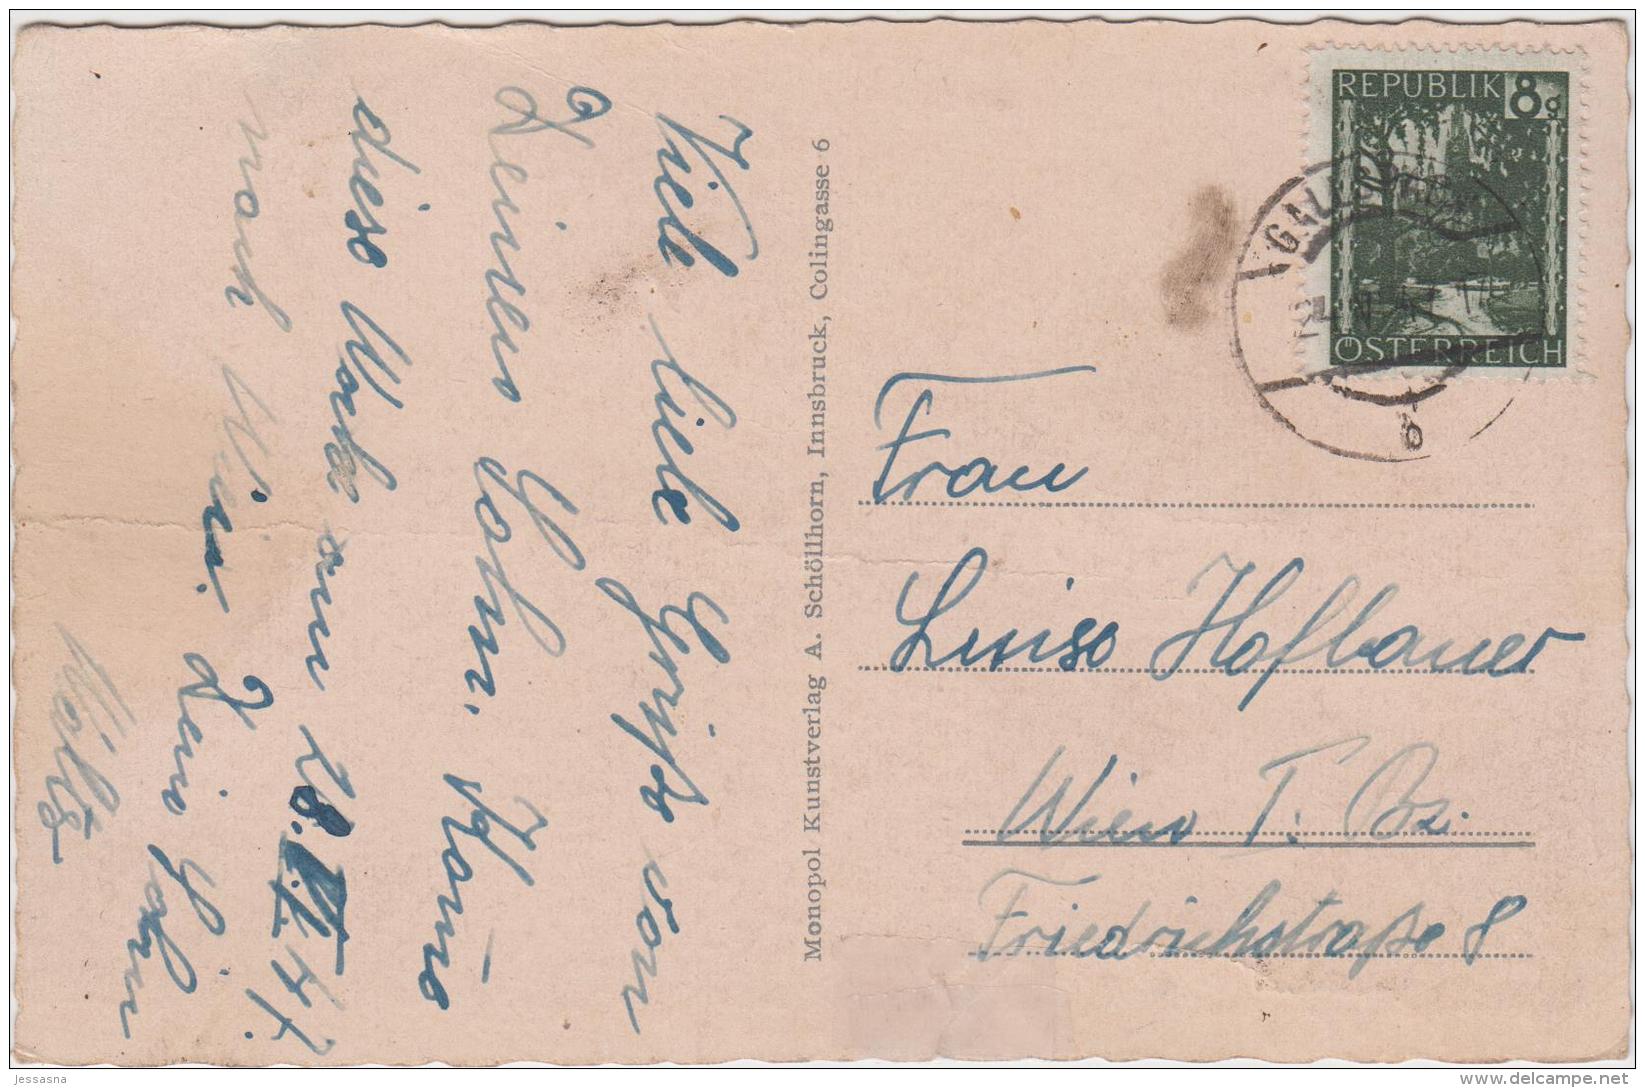 Viele liebe Grüße von
Deinem Sohn. Komme
diese Woche am 28. IV. 47.
nach Wien. Dein Sohn
Monopol Kunstverlag A. Schöllhorn, Innsbruck, Colingasse 6
REPUBLIK 8g
ÖSTERREICH
b
Frau
Luise Hofbauer
Wien I. Bz.
Friedrichstraße 8
jessasna
www.delcampe.net